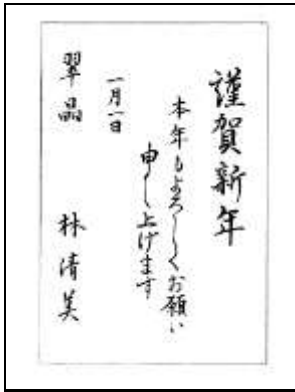 謹賀新年
本年もよろしくお願い
申し上げます
一月一日
翠晶 林清美